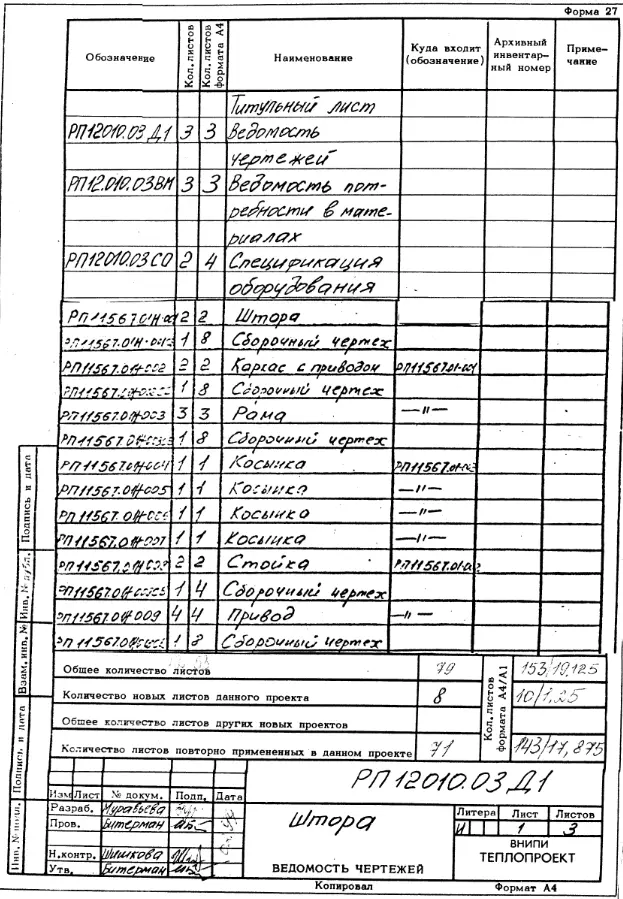 Форма 27
Обозначение Кол. листов Кол. листов формата А4 Наименование Куда входит (обозначение) Архивный инвентарный номер Примечание
Титульный лист
РП12010.03 Д1 3 3 Ведомость
чертежей
РП12.010.03ВМ 3 3 Ведомость пот-
ребности в мате-
риалах
РП12010.03 СО 2 4 Спецификация
оборудования
2 2 Штора
1 8 Сборочный чертеж
РП11567.01-002 2 2 Каркас с приводом РП11567.01-001
1 8 Сборочный чертеж
РП11567.01-003 3 3 Рама —"—
1 8 Сборочный чертеж
РП11567.01-004 1 1 Косынка РП11567.01-003
РП11567.01-005 1 1 Косынка —"—
РП11567.01-006 1 1 Косынка —"—
РП11567.01-007 1 1 Косынка —"—
2 2 Стойка РП11567.01-002
1 4 Сборочный чертеж
РП11567.01-009 4 4 Привод —"—
1 8 Сборочный чертеж
Общее количество листов 79
Количество новых листов данного проекта 8
Общее количество листов других новых проектов
Количество листов повторно примененных в данном проекте 71
Кол. листов формата А4/А1
153/19,125
10/1,25
143/17,875
Подпись и дата
Инв. № дубл.
Взам. инв. №
Подпись и дата
Инв. № подл.
РП12010.03 Д1
Изм Лист № докум. Подп. Дата
Разраб. Муравьева
Пров. Битерман
Н.контр. Шишкова
Утв. Битерман
Штора
ВЕДОМОСТЬ ЧЕРТЕЖЕЙ
Литера Лист Листов
И 1 3
ВНИПИ
ТЕПЛОПРОЕКТ
Копировал Формат А4